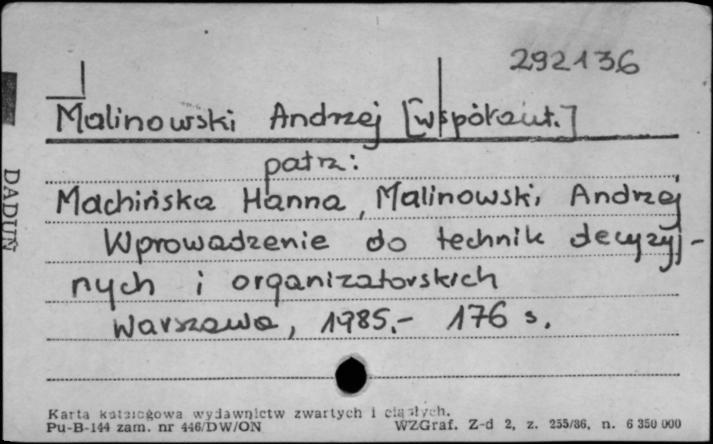 292136
Malinowski Andrzej [współaut.]
patrz:
Machińska Hanna, Malinowski, Andrzej
Wprowadzenie do technik decyzyj-
nych i organizatorskich
Warszawa, 1985.- 176 s.
DADUŃ
Karta katalogowa wydawnictw zwartych i ciągłych.
Pu-B-144 zam. nr 446/DW/ON WZGraf. Z-d 2, z. 255/86, n. 6 350 000